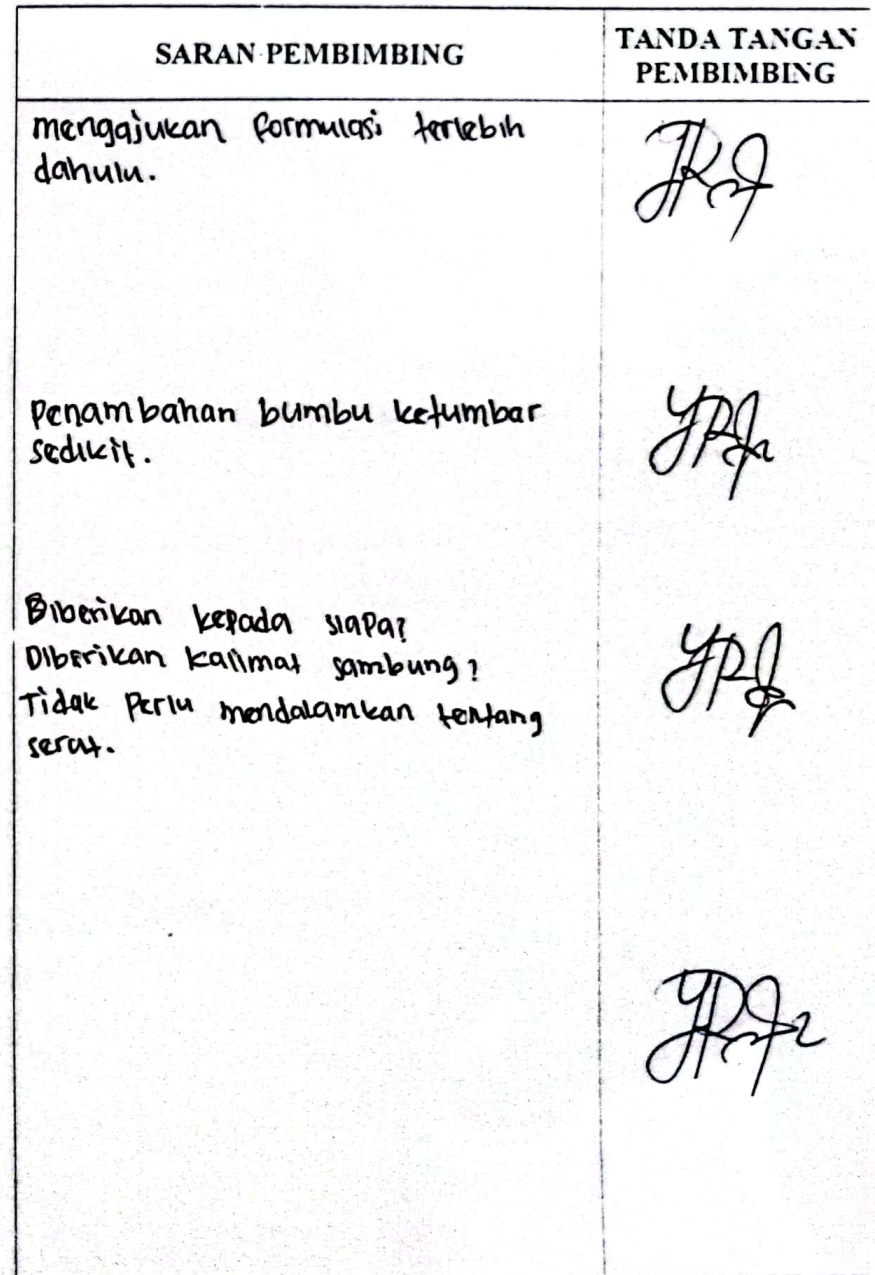 SARAN PEMBIMBING
TANDA TANGAN
PEMBIMBING
mengajukan formulasi terlebih
dahulu.
Penambahan bumbu ketumbar
sedikit.
Diberikan kepada siapa?
Diberikan kalimat sambung?
Tidak perlu mendalamkan tentang
serat.